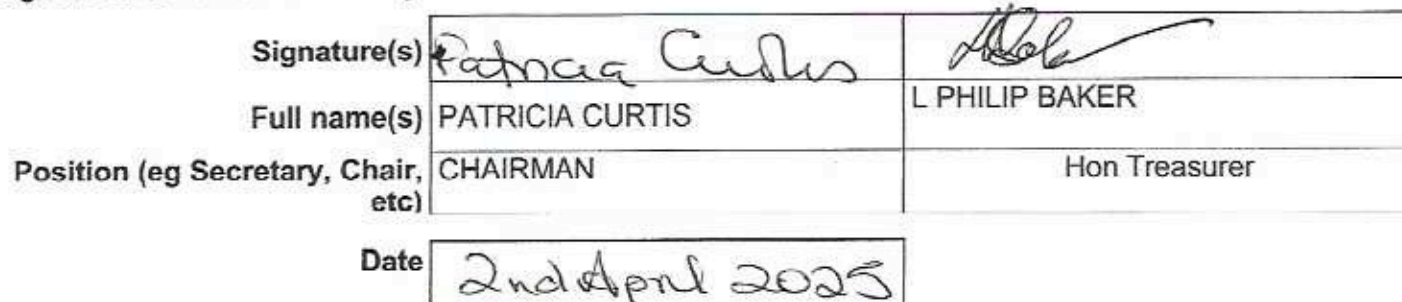 Signature(s) Patricia Curtis
Full name(s) PATRICIA CURTIS L PHILIP BAKER
Position (eg Secretary, Chair, etc) CHAIRMAN Hon Treasurer
Date 2nd April 2025